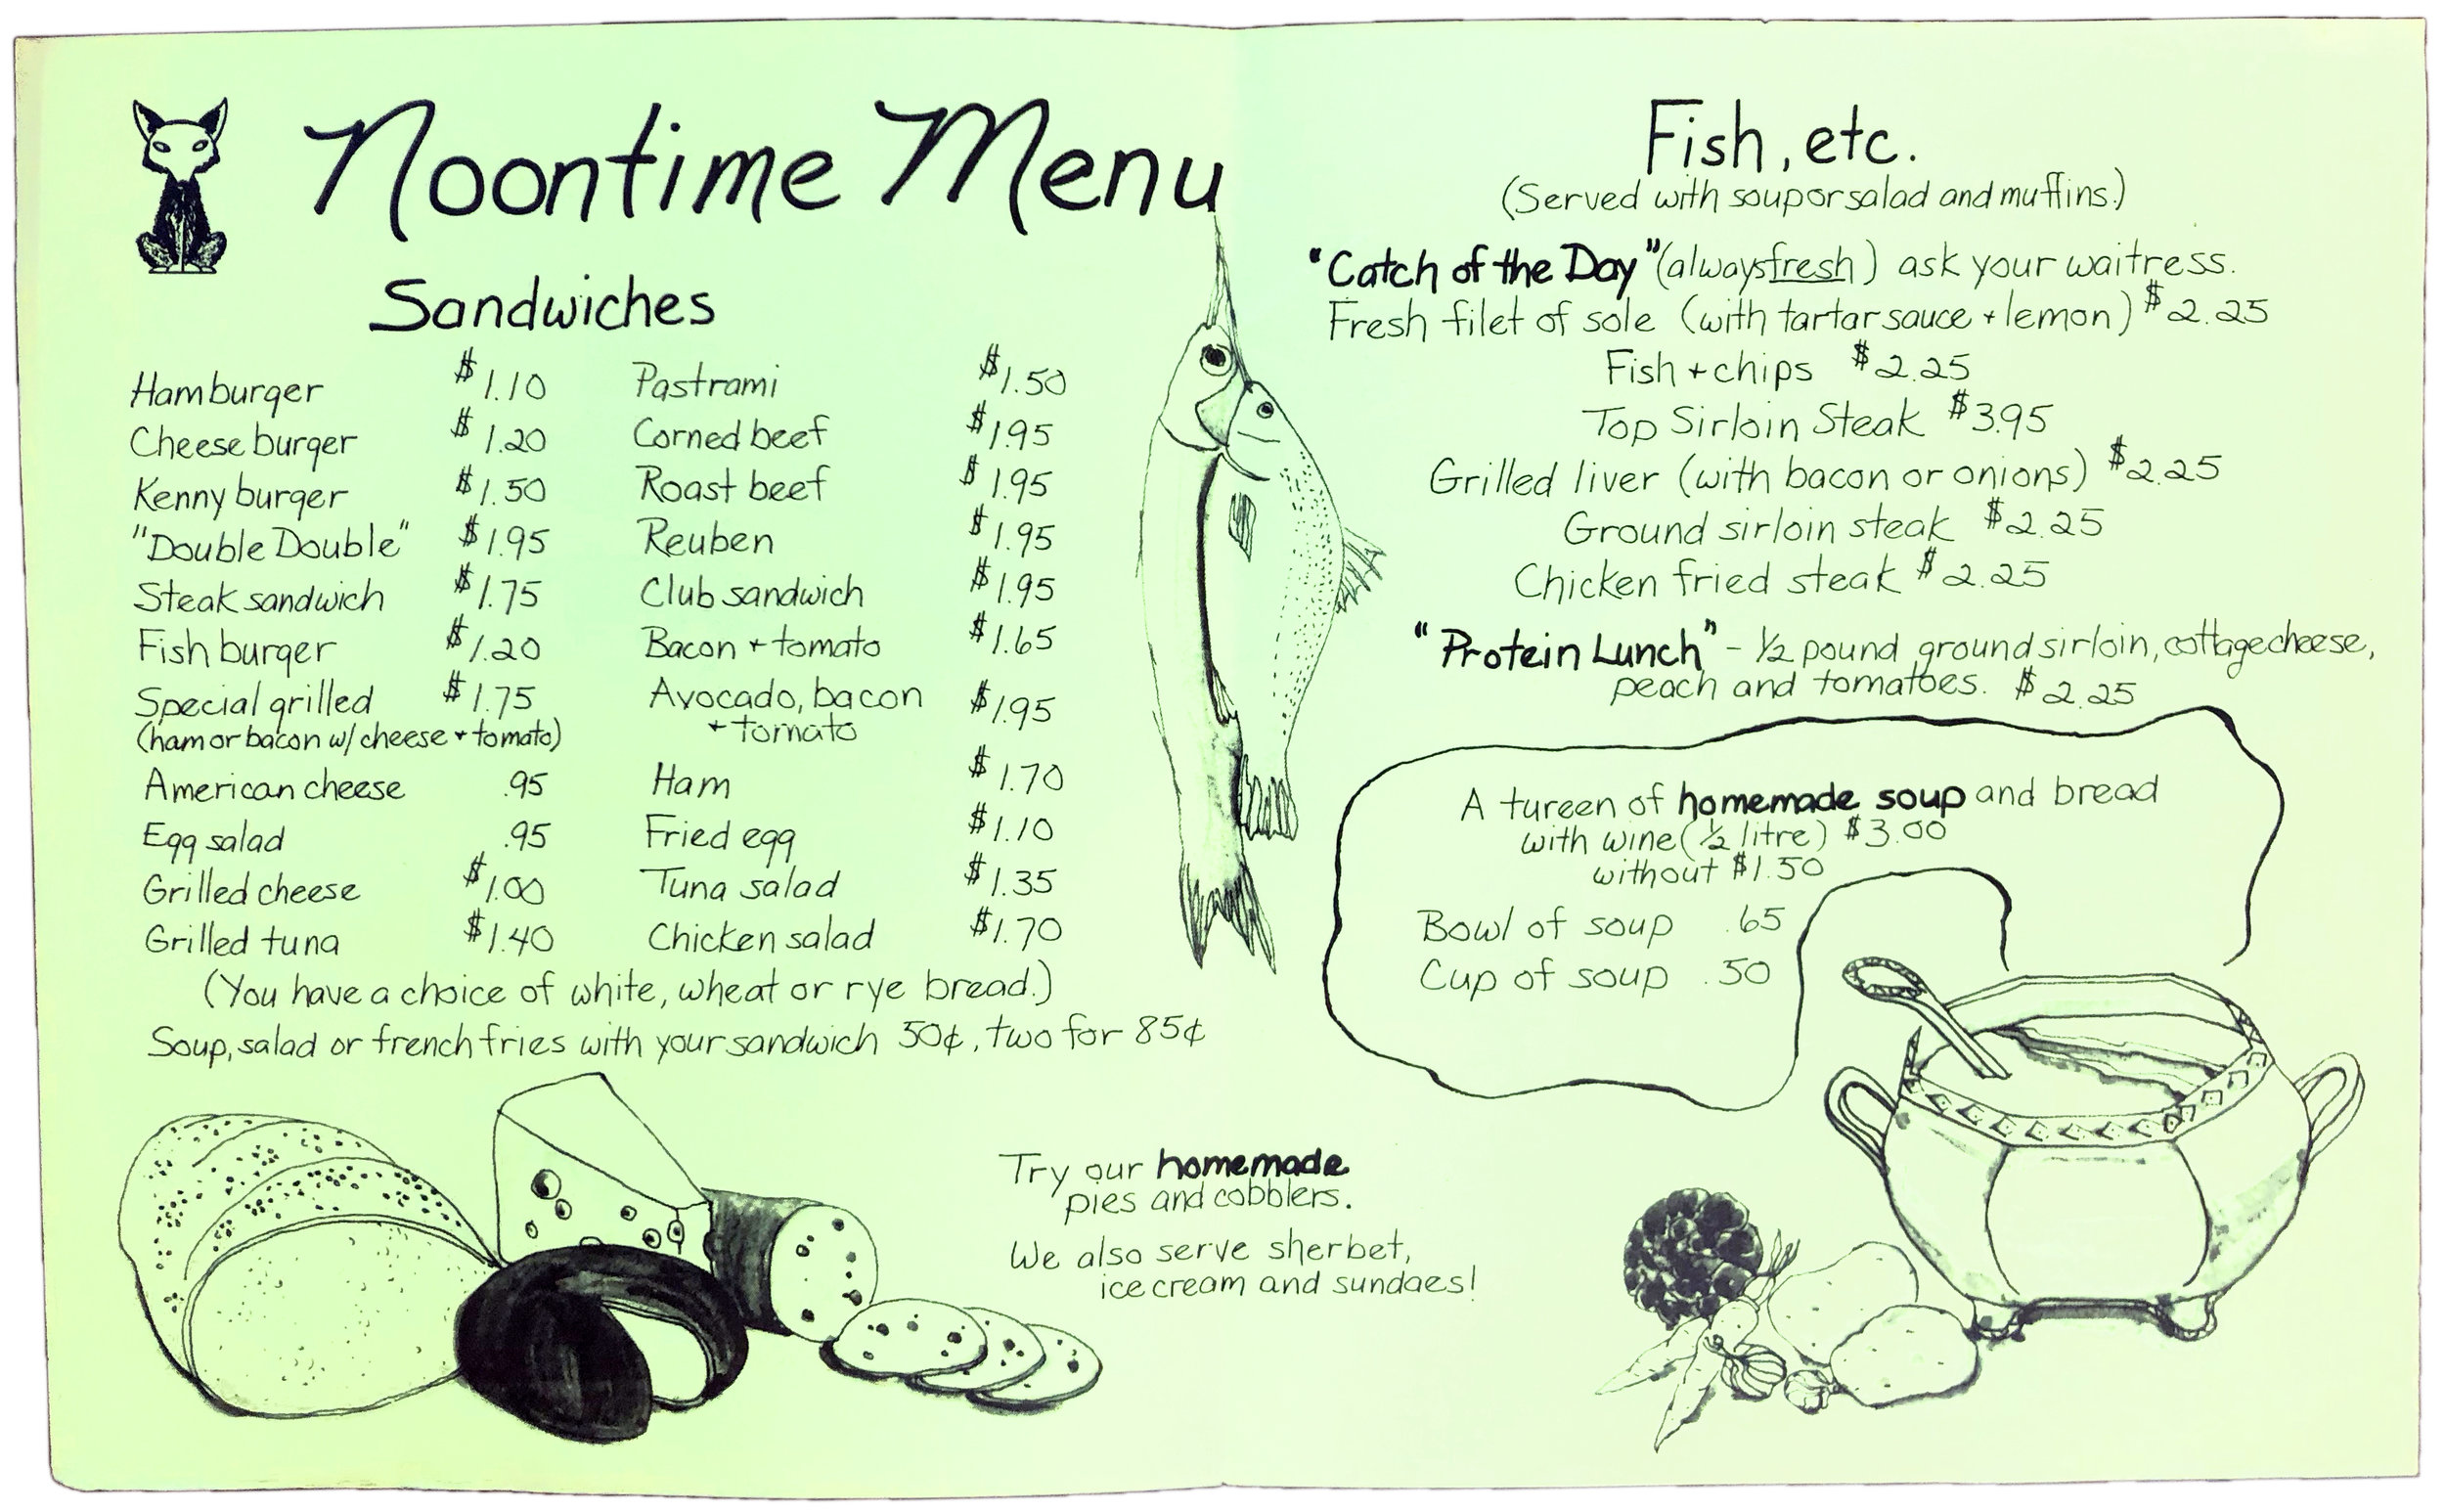 Noontime Menu
Sandwiches
Hamburger $1.10
Cheeseburger $1.20
Kenny burger $1.50
"Double Double" $1.95
Steak sandwich $1.75
Fish burger $1.20
Special grilled $1.75
(ham or bacon w/ cheese + tomato)
American cheese .95
Egg salad .95
Grilled cheese $1.00
Grilled tuna $1.40
Pastrami $1.50
Corned beef $1.95
Roast beef $1.95
Reuben $1.95
Club sandwich $1.95
Bacon + tomato $1.65
Avocado, bacon $1.95
+ tomato
Ham $1.70
Fried egg $1.10
Tuna salad $1.35
Chicken salad $1.70
(You have a choice of white, wheat or rye bread.)
Soup, salad or french fries with your sandwich 50¢, two for 85¢
Try our homemade
pies and cobblers.
We also serve sherbet,
ice cream and sundaes!
Fish, etc.
(Served with soup or salad and muffins.)
"Catch of the Day" (always fresh) ask your waitress.
Fresh filet of sole (with tartar sauce + lemon) $2.25
Fish + chips $2.25
Top Sirloin Steak $3.95
Grilled liver (with bacon or onions) $2.25
Ground sirloin steak $2.25
Chicken fried steak $2.25
"Protein Lunch" - 1/2 pound ground sirloin, cottage cheese,
peach and tomatoes. $2.25
A tureen of homemade soup and bread
with wine (1/2 litre) $3.00
without $1.50
Bowl of soup .65
Cup of soup .50